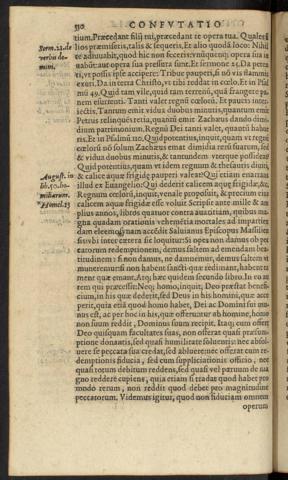 510 CONFVTATIO
tium. Præcedant filij tui, præcedant te opera tua. Qualem
lios præmiseris, talis & sequeris, Et alio quoque loco: Nihil
te adiuuabit, quod hic non feceris
nabūt: aut opera sua pressura sunt. Et sermone 24. Da pete
ti, vt possis ipse accipere: Tribue pauperi, si nō vis flammis
exuri. Da in terra Christo, vt tibi reddat in coelo. Et in Psal
mū 49. Quid tam vile, quid tam terrenū, quā frangere pa
nem esurienti. Tanti valet regnū cœlorū. Et paucis inter
iectis, Tantum emit vidua duobus minutis, quantum emit
Petrus relinquēs retia, quantū emit Zachæus dando dimi
dium patrimonium. Regnū Dei tanti valet, quantū habu
eris. Et in Psalmū 110. Quid potentius, inquit, quam vt regnū
cœlorū nō solum Zachæus emat dimidia rerū suarum, sed
& vidua duobus minutis, & tantundem vterque possideat
Quid potentius, quam vt idem regnum & thesauris diuiti,
& calice aquæ frigidæ pauperi valeat? Qui etiam enarrans
illud ex Euangelio: Qui dederit calicem aquæ frigidæ, &c.
Regnum cœlorū, inquit, venale proposuit, & precium eius
calicem aquæ frigidæ esse voluit Scripsit ante mille & am
plius annos, libros quatuor contra auaritiam, quibus ma
gna quadam orationis vehemētia mortales ad impartien
dam eleemosynam accēdit Saluianus Episcopus Massiliē
sis vbi inter cætera sic loquitur: Si opes non damus ob pec
catorum redemptionem, demus saltem ad emendam bea
titudinem: si non damus, ne damnemur, demus saltem vt
muneremur: si non habent sancti quæ redimant, habent ta
ment quæ emant. Atque hæc quidem secundo libro. In eo au
tem qui præcessit: Neque homo, inquit, Deo præstat benefi
cium, in his quæ dederit, sed Deus in his homini, quæ acce
perit, quia etiā quod homo habet, Dei ac Domini sui mu
nus est, ac per hoc in his, quæ offeruntur ab homine, homo
non suum reddit, Dominus suum recipit. Itaque cum offert
Deo quispiam facultates suas, non offerat quasi præsum
ptione donantis, sed quasi humilitate soluentis: nec absol
uere se peccata sua credat, sed abluere: nec offerat cum re
demptionis fiducia, sed cum supplicationis officio, nec
quasi totum debitum reddens, sed quasi vel paruum de ma
gno reddere cupiens, quia etiam si tradas quod habet pro
modo rerum, non reddit quod debet pro magnitudine
peccatorum. Videmus igitur, quod non fiduciam omnem
operum
Serm. 22. de
verbis do-
mini.
August. in
lib. 50. ho-
miliarum.
Homil. 25